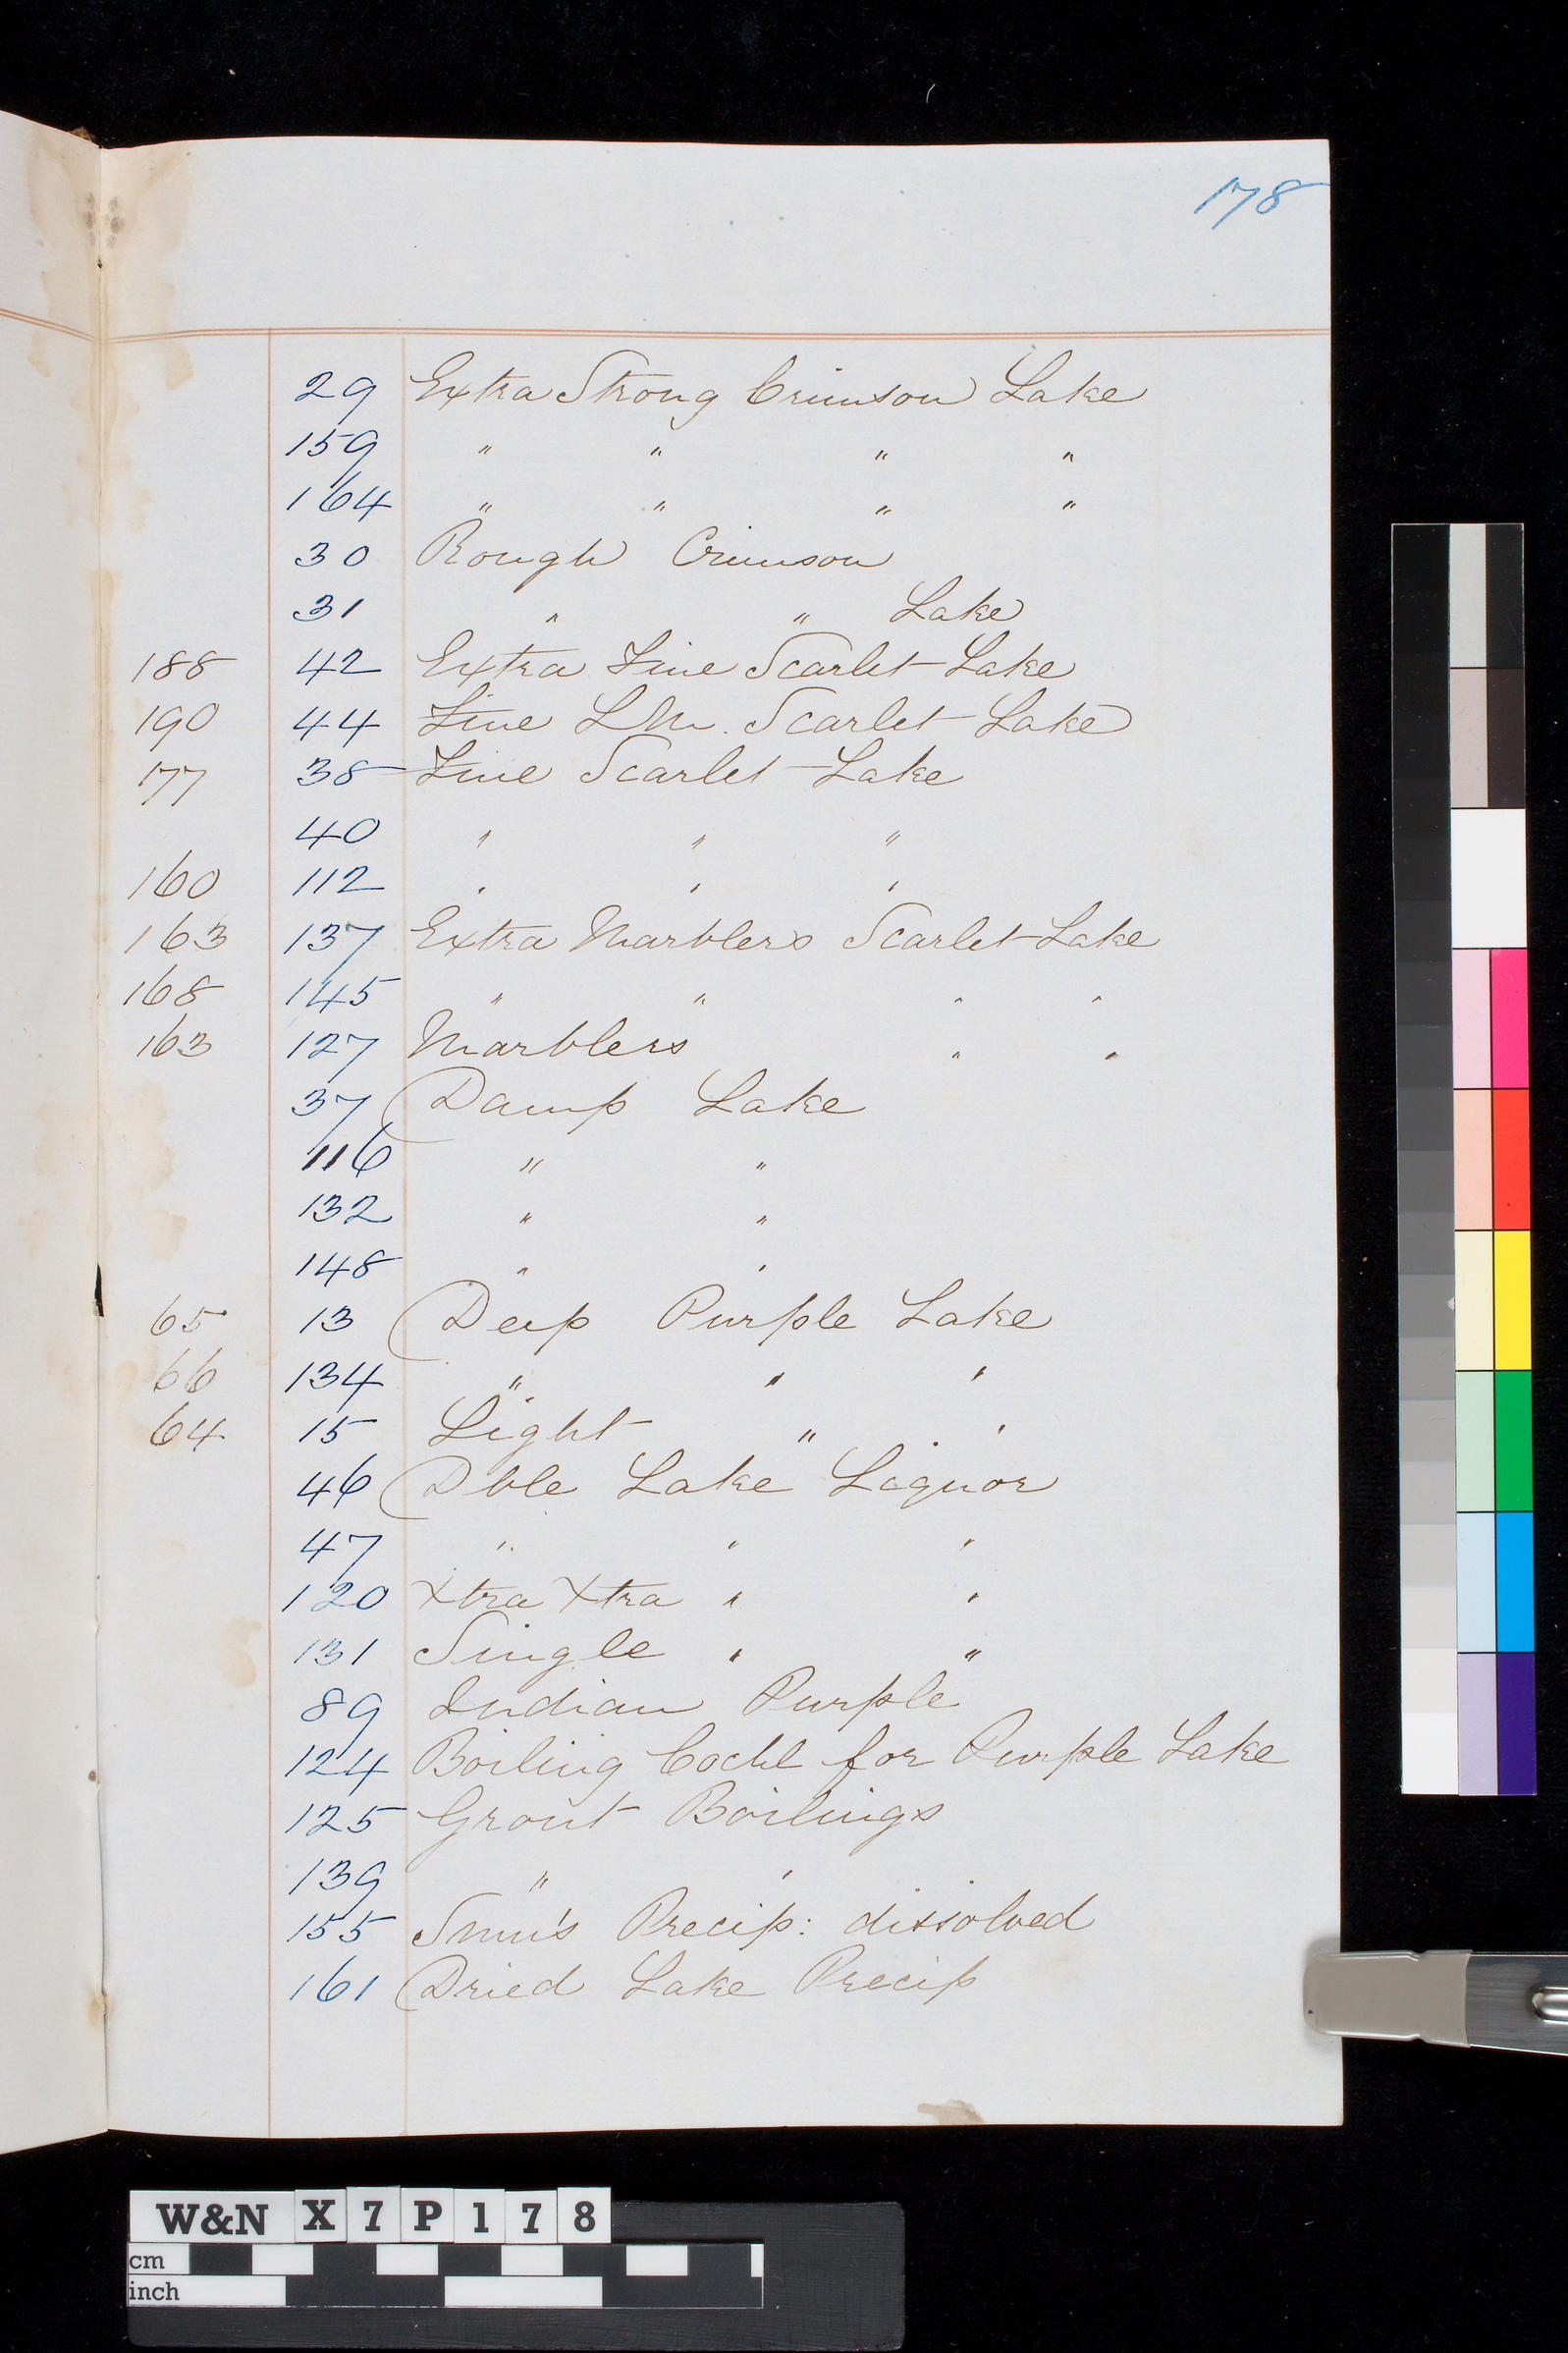 178
29 Extra Strong Crimson Lake
159 " " " "
164 " " " "
30 Rough Crimson
31 " " Lake
188 42 Extra Fine Scarlet Lake
190 44 Fine LM. Scarlet Lake
177 38 Fine Scarlet Lake
40 " " "
160 112 " " "
163 137 Extra Marblers Scarlet Lake
168 145 " " " "
163 127 Marblers " "
37 Damp Lake
116 " "
132 " "
148 " "
65 13 Deep Purple Lake
66 134 " " "
64 15 Light " "
46 Dble Lake Liquor
47 " " "
120 Xtra Xtra " "
131 Single " "
89 Indian Purple
124 Boiling Cochl for Purple Lake
125 Grout Boilings
139 " "
155 Precip: dissolved
161 Dried Lake Precip
W&N X7P178
cm
inch